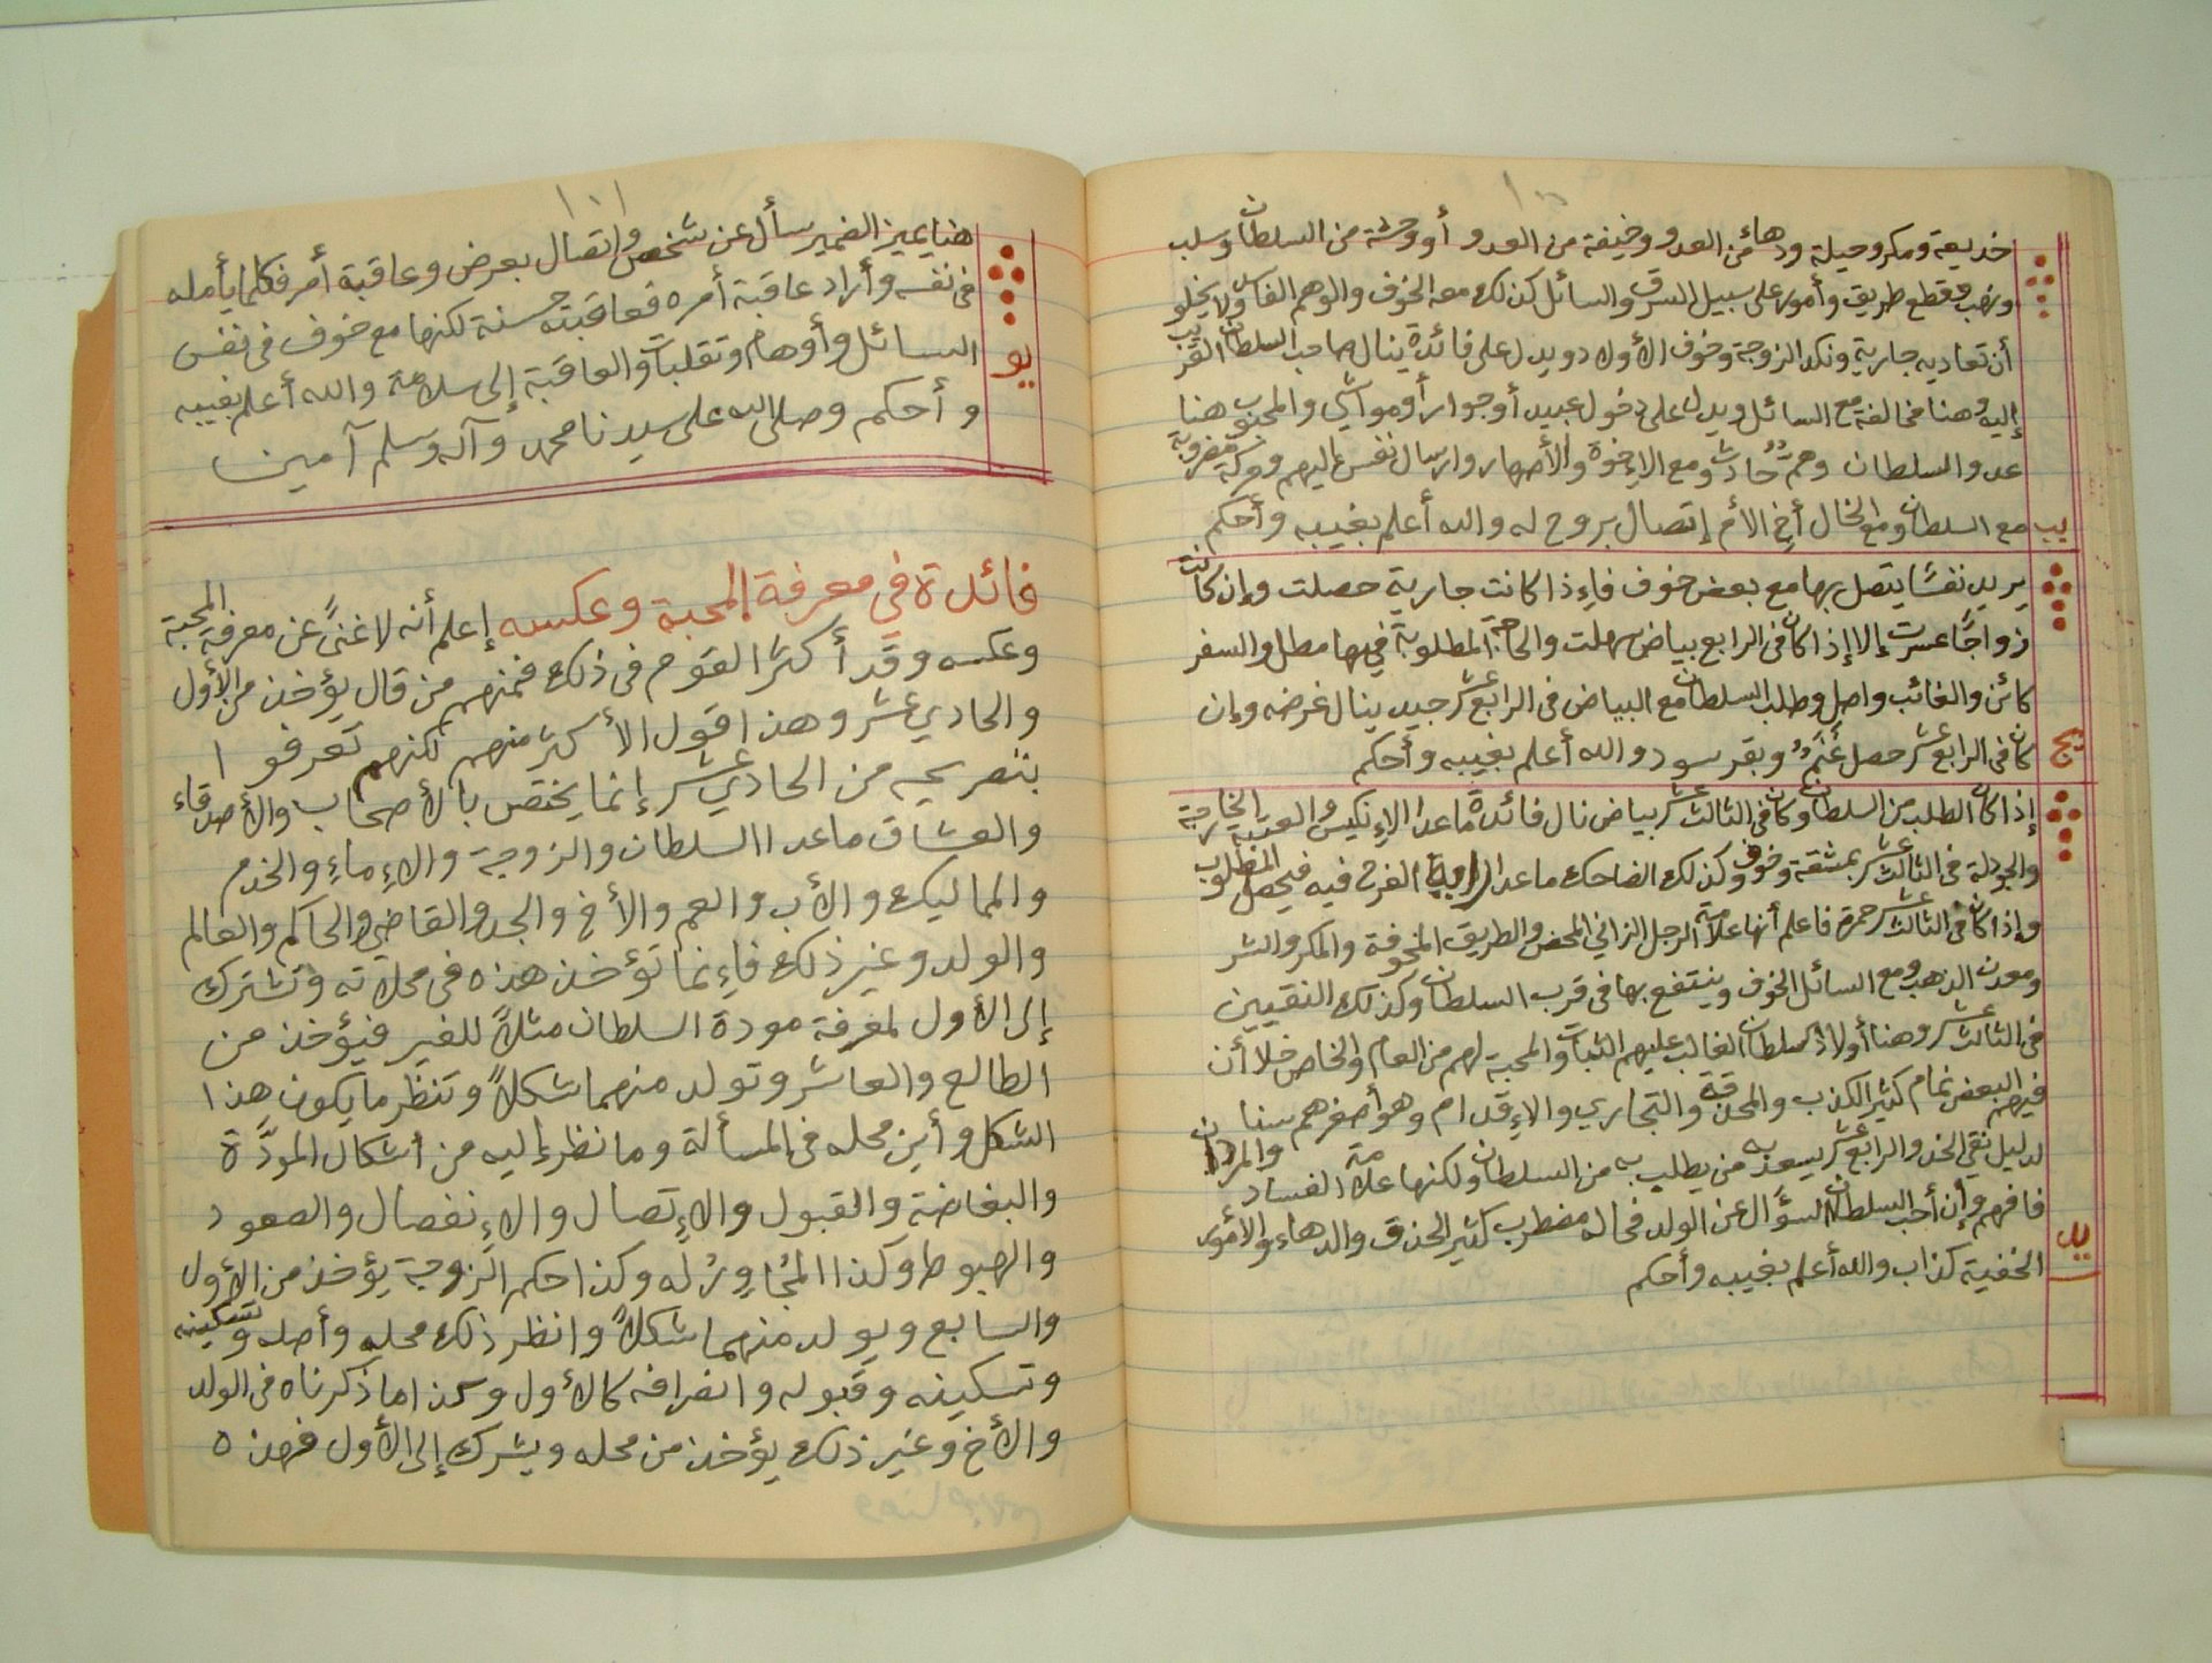 خديعة ومكر وحيلة ودهاء من العدو وخيفة من العدو أو وحشة من السلطان وسلب
ونهب وقطع طريق وأمور على سبيل السرق والسائل كذلك معه الخوف والوهم الفاسد ولا يخلو
أن تعاديه جارية ونكد الزوجة وخوف الأولاد ويدل على فائدة ينال صاحب السلطان القريب
إليه وهنا مخالفة مع السائل ويدل على دخول عبيد أو جوار أو مواشي والمحبوب هنا
عدو السلطان وهم حادث ومع الإخوة والأصهار وارسال نفس إليهم وحركة مضروبة
يب مع السلطان ومع الخال أخ الأم إتصال بروح له والله أعلم بغيبه وأحكم
يريد نفسًا يتصل بها مع بعض خوف فإذا كانت جارية حصلت وإن كانت
زواجًا عسرت إلا إذا كان فى الرابع بياض سهلت والحاجة المطلوبة فيها مطل والسفر
كائن والغائب واصل وطلب السلطان مع البياض فى الرابع عشر جيد ينال غرضه وإن
يج كان فى الرابع عشر حصل غنم وبقر سود والله أعلم بغيبه وأحكم
إذا كان الطلب من السلطان وكان فى الثالث عشر بياض نال فائدة ماعدا الإنكيس والعتبة الخارجة
والجودلة فى الثالث عشر بمشقة وخوف وكذلك الضاحك ماعدا الراية الفرح فيه فيحصل المطلوب
وإذا كان فى الثالث عشر حمرة فاعلم أنها علامة الرجل الزاني المحض والطريق المخوفة والمكر والشر
ومعدن الذهب ومع السائل الخوف وينتفع بها فى قرب السلطان وكذلك النقيين
فى الثالث عشر وهنا أولاد السلطان الغالب عليهم الثبات والمحبة لهم من العام والخاص خلا أن
فيهم البعض نمام كثير الكذب والمحذقة والتجاري والإقدام وهو أصغرهم سنا
لدليل نقي الخد والرابع عشر يسعد به من يطلب به من السلطان ولكنها علامة الفساد والمردان
يد فافهم وإن أحب السلطان السؤال عن الولد فحاله مضطرب كثير الحذق والدهاء والأمور
الخفية كذاب والله أعلم بغيبه وأحكم
١٠١
هنا يميز الضمير سأل عن شخص واتصال بعرض وعاقبة أمر فكلما يأمله
فى نفسه وأراد عاقبة أمره فعاقبته حسنة لكنها مع خوف فى نفس
يو السائل وأوهام وتقلبات والعاقبة إلى سلامة والله أعلم بغيبه
وأحكم وصلى الله على سيدنا محمد وآله وسلم آمين
فائدة فى معرفة المحبة وعكسه إعلم أنه لا غنىً عن معرفة المحبة
وعكسه وقد أكثر القوم فى ذلك فمنهم من قال يؤخذ من الأول
والحادي عشر وهذا قول الأكثر منهم لكنهم تعرفوا
بتصريحه من الحادي عشر إنما يختص بالأصحاب والأصدقاء
والعشاق ماعدا السلطان والزوجة والإماء والخدم
والمماليك والأب والعم والأخ والجد والقاضي والحاكم والعالم
والولد وغير ذلك فإنما تؤخذ هذه فى محلاته وتشترك
إلى الأول لمعرفة مودة السلطان مثلاً للغير فيؤخذ من
الطالع والعاشر وتولد منهما شكلاً وتنظر ما يكون هذا
الشكل وأين محله فى المسألة وما نظر إليه من أشكال المودّة
والبغاضة والقبول والإتصال والإنفصال والصعود
والهبوط وكذا المُجاوِرُ له وكذا حكم الزوجة يؤخذ من الأول
والسابع ويولد منهما شكلاً وانظر ذلك محله وأصله وتسكينه
وتسكينه وقبوله وانصرافه كالأول وكذا ما ذكرناه فى الولد
والأخ وغير ذلك يؤخذ من محله ويشرك إلى الأول فهذه